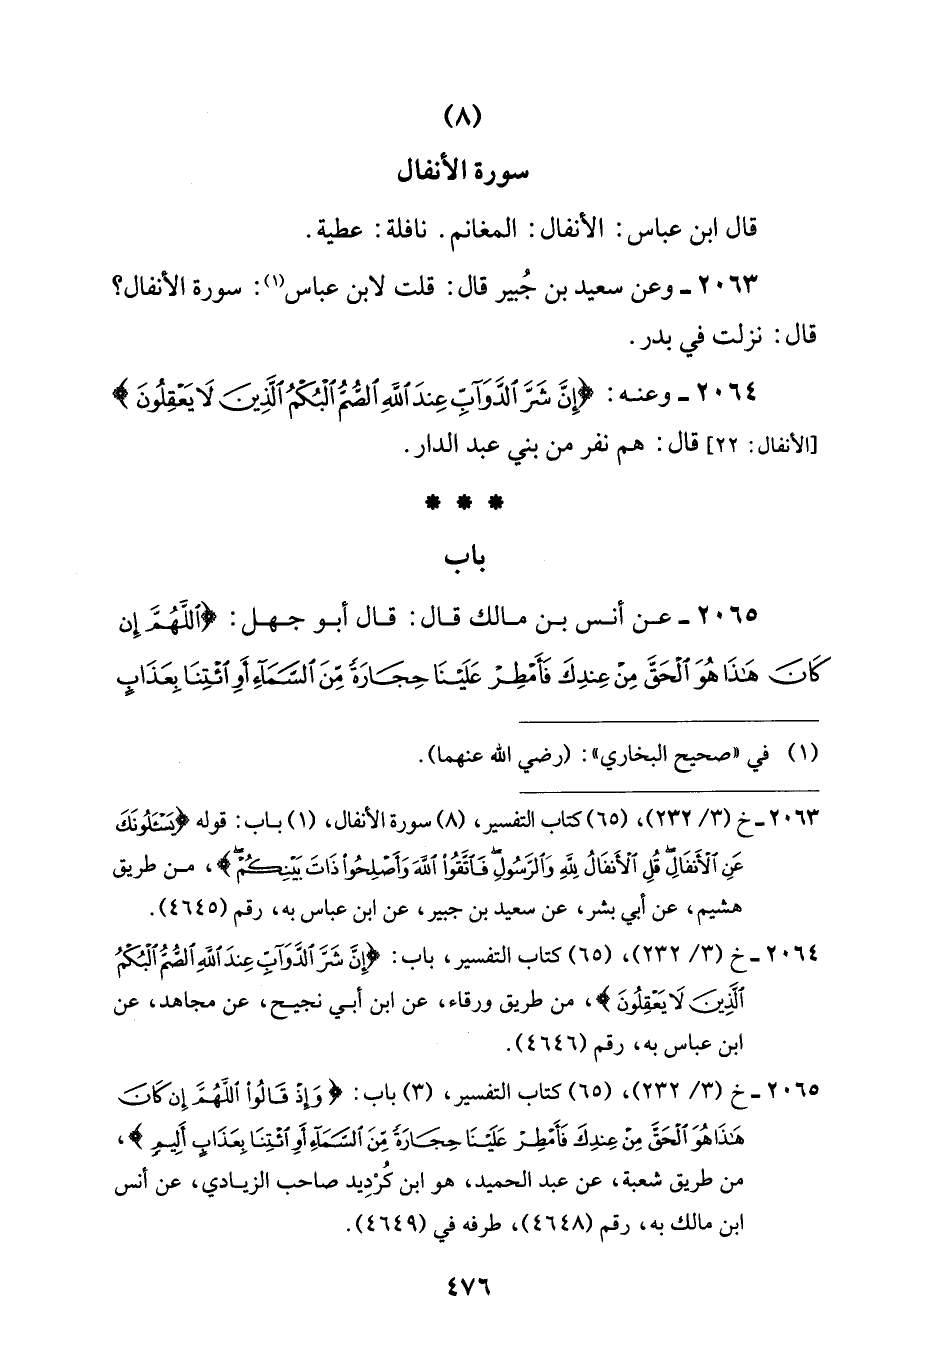 (٨)
سورة الأنفال
قال ابن عباس: الأنفال: المغانم. نافلة: عطية.
٢٠٦٣ ـ وعن سعيد بن جُبير قال: قلت لابن عباس(١): سورة الأنفال؟
قال: نزلت في بدر.
٢٠٦٤ ـ وعنه: ﴿إِنَّ شَرَّ ٱلدَّوَآبِّ عِندَ ٱللَّهِ ٱلصُّمُّ ٱلْبُكْمُ ٱلَّذِينَ لَا يَعْقِلُونَ﴾
[الأنفال: ٢٢] قال: هم نفر من بني عبد الدار.
* * *
باب
٢٠٦٥ ـ عن أنس بن مالك قال: قال أبو جهل: ﴿ٱللَّهُمَّ إِن
كَانَ هَٰذَا هُوَ ٱلْحَقَّ مِنْ عِندِكَ فَأَمْطِرْ عَلَيْنَا حِجَارَةً مِّنَ ٱلسَّمَآءِ أَوِ ٱئْتِنَا بِعَذَابٍ
(١) في «صحيح البخاري»: (رضي الله عنهما).
٢٠٦٣ ـ خ (٣/ ٢٣٢)، (٦٥) كتاب التفسير، (٨) سورة الأنفال، (١) باب: قوله ﴿يَسْـَٔلُونَكَ
عَنِ ٱلْأَنفَالِ ۖ قُلِ ٱلْأَنفَالُ لِلَّهِ وَٱلرَّسُولِ ۖ فَٱتَّقُوا۟ ٱللَّهَ وَأَصْلِحُوا۟ ذَاتَ بَيْنِكُمْ ۖ﴾، من طريق
هشيم، عن أبي بشر، عن سعيد بن جبير، عن ابن عباس به، رقم (٤٦٤٥).
٢٠٦٤ ـ خ (٣/ ٢٣٢)، (٦٥) كتاب التفسير، باب: ﴿إِنَّ شَرَّ ٱلدَّوَآبِّ عِندَ ٱللَّهِ ٱلصُّمُّ ٱلْبُكْمُ
ٱلَّذِينَ لَا يَعْقِلُونَ﴾، من طريق ورقاء، عن ابن أبي نجيح، عن مجاهد، عن
ابن عباس به، رقم (٤٦٤٦).
٢٠٦٥ ـ خ (٣/ ٢٣٢)، (٦٥) كتاب التفسير، (٣) باب: ﴿وَإِذْ قَالُوا۟ ٱللَّهُمَّ إِن كَانَ
هَٰذَا هُوَ ٱلْحَقَّ مِنْ عِندِكَ فَأَمْطِرْ عَلَيْنَا حِجَارَةً مِّنَ ٱلسَّمَآءِ أَوِ ٱئْتِنَا بِعَذَابٍ أَلِيمٍ﴾،
من طريق شعبة، عن عبد الحميد، هو ابن كُرْدِيد صاحب الزيادي، عن أنس
ابن مالك به، رقم (٤٦٤٨)، طرفه في (٤٦٤٩).
٤٧٦